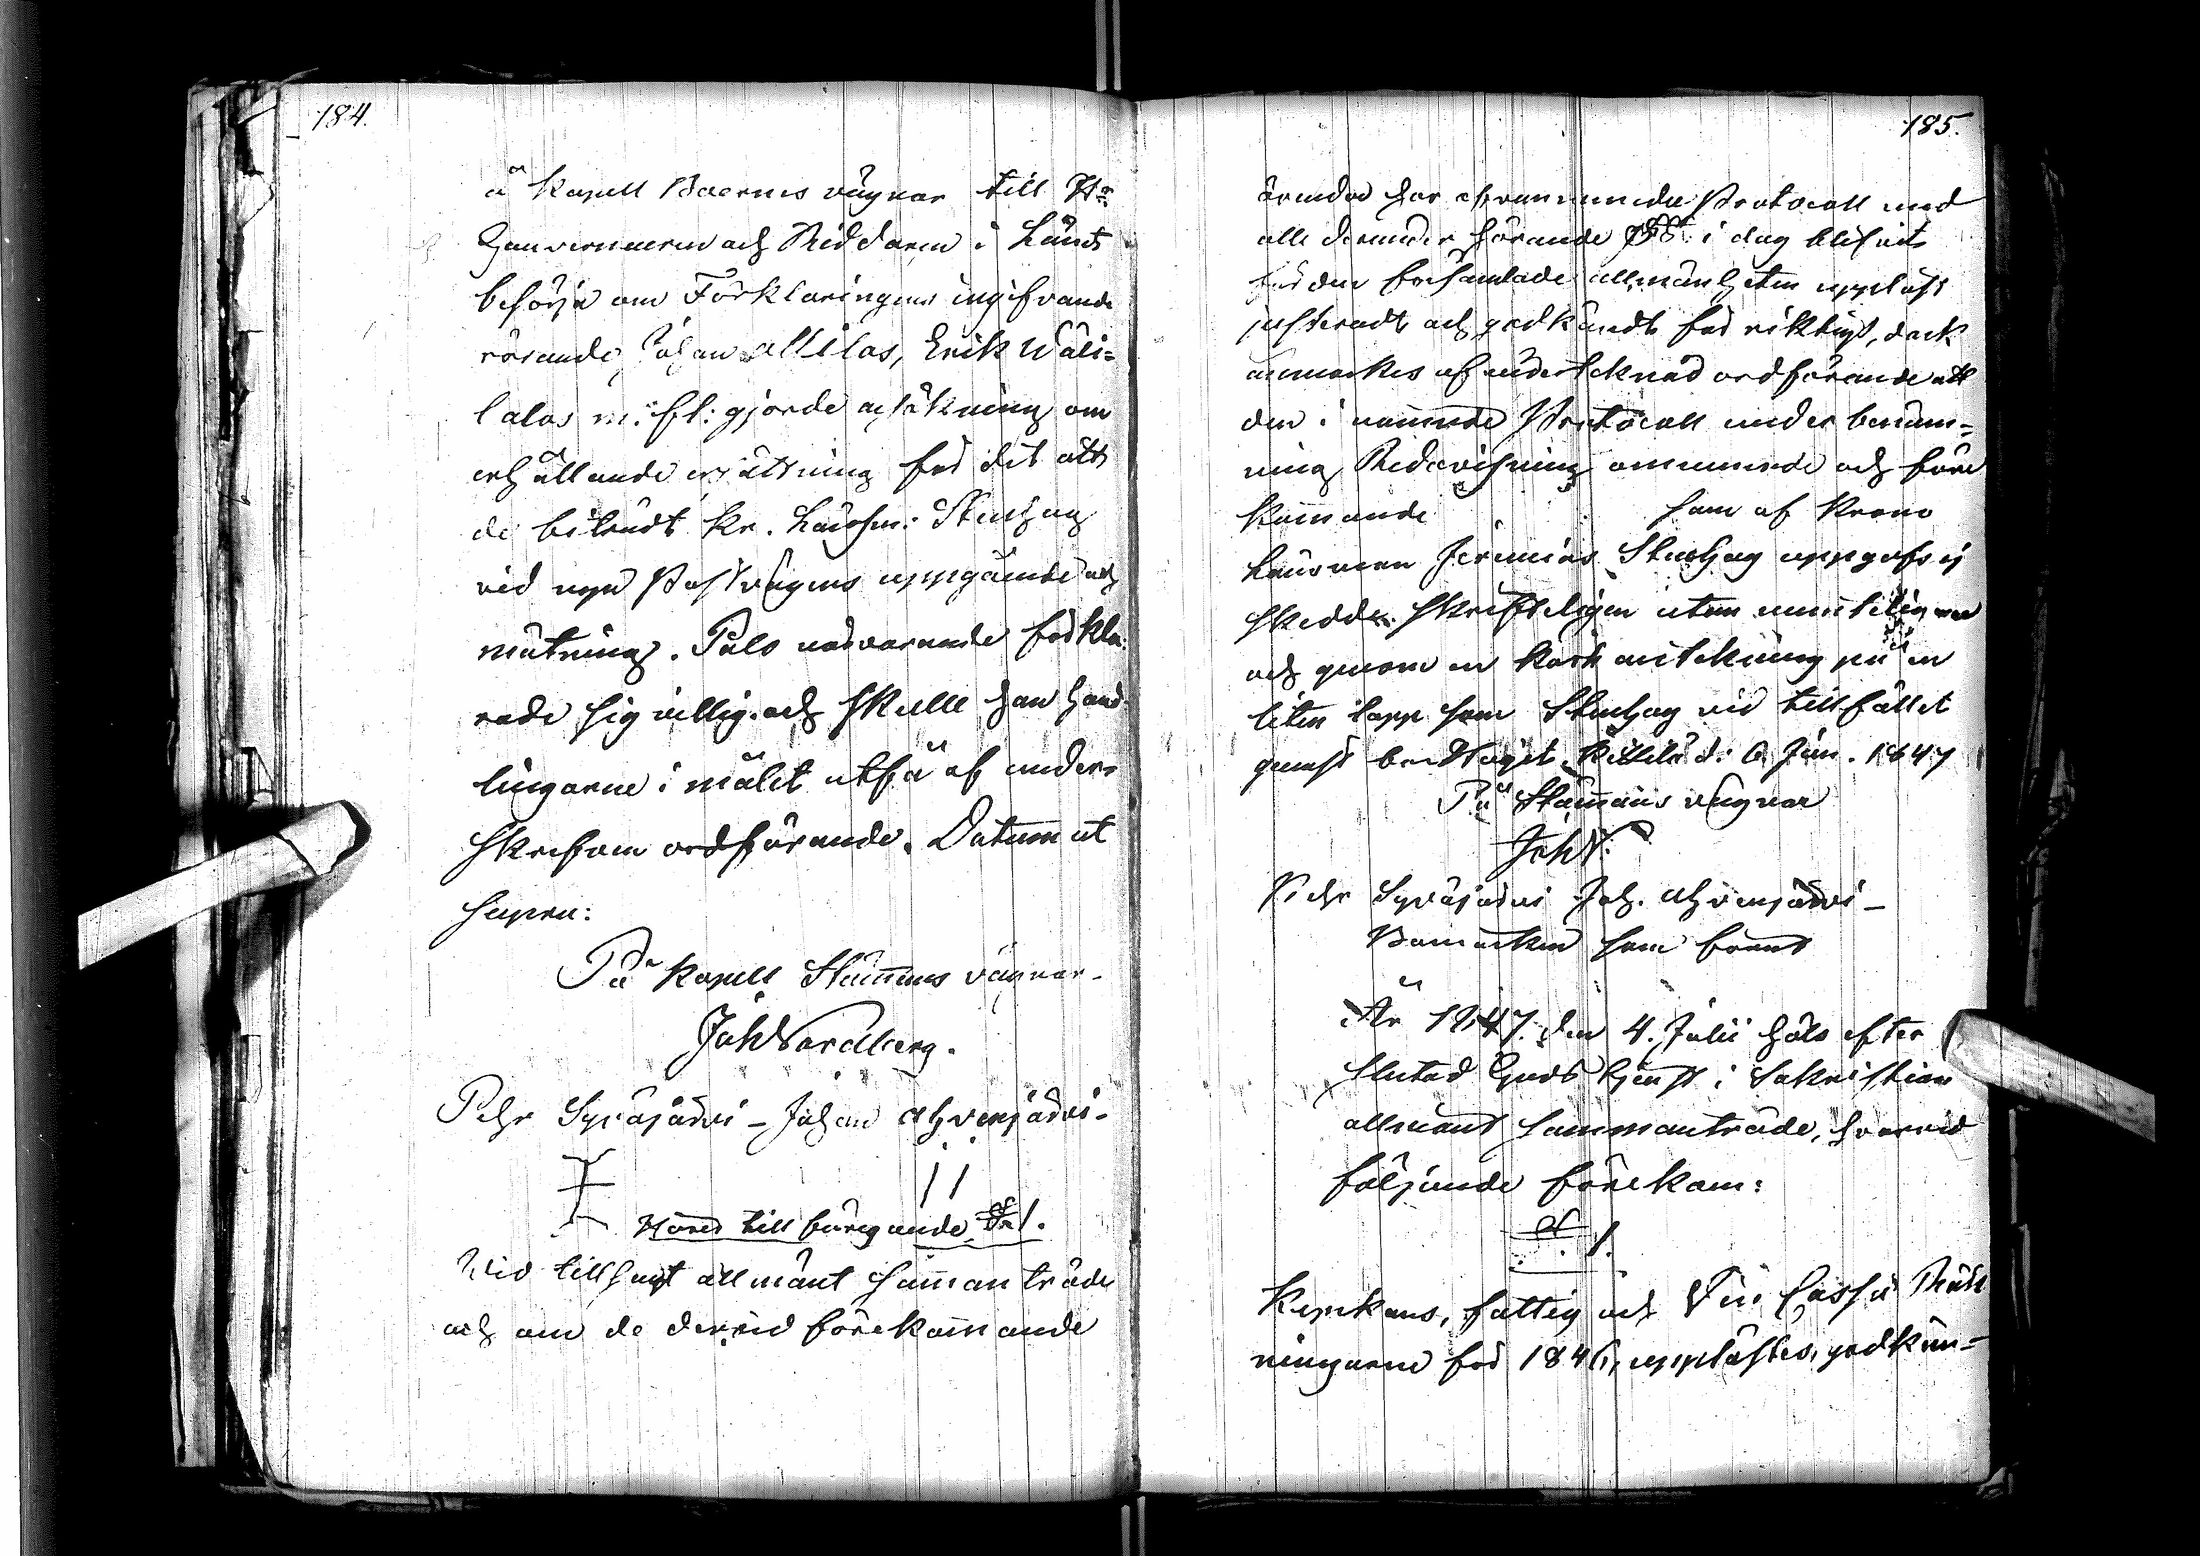 184.
å Kapell Boernes vägnar till Hr
Gouverneuren och Riddaren i Länet
besörja om Förklaringens ingifvande
rörande Johan Allilas, Erik Wäli-
talas m. fl: gjorde ansökning om
erhållande ersättning för det att
de biträdt Kr. Länsm: Stenhag
vid nya Postvägens uppgående och
mätning. Palo närvarande förkla-
rade sig villig och skulle han hand-
lingarne i målet utfå af under-
skrefven ordförande. Datum ut
supra:
På Kapell Stämmans vägnar
Joh Nordberg.
Pehr Syväjärvi - Johan Ahvenjärvi -
Not till föregående § 1.
Wid tillsagt allmänt sammanträde
och om de dervid förekommande
185.
ärender har ofvannämnde Protocoll med
alla derunder hörande §§ i dag blifvit
för den församlade allmänheten uppläst
justeradt och godkändt för riktigt, dock
anmärkes af undertecknad ordförande att
den i nämnde Protocoll under benäm-
ning Redovisning omnämnde och före
kommande som af Krono
Länsman Jeremias Stenhag uppgafs ej
skedde skrifteligen utan munteligen
och genom en kort anteckning på en
liten lapp som Stenhag vid tillfället
genast borttagit. Kittilä d: 6 Jun. 1847
På Stämmans vägnar
Joh N.
Pehr Syväjärvi Joh. Ahvenjärvi -
Bomärken som förut
År 1847. den 4. Julii höls efter
slutad Guds tjenst i Sakristian
allmänt sammanträde, hvarvid
följande förekom:
§ 1.
Kyrkans, fattig och Vin Cassa Räk
ningarne för 1846, upplästes, godkän-